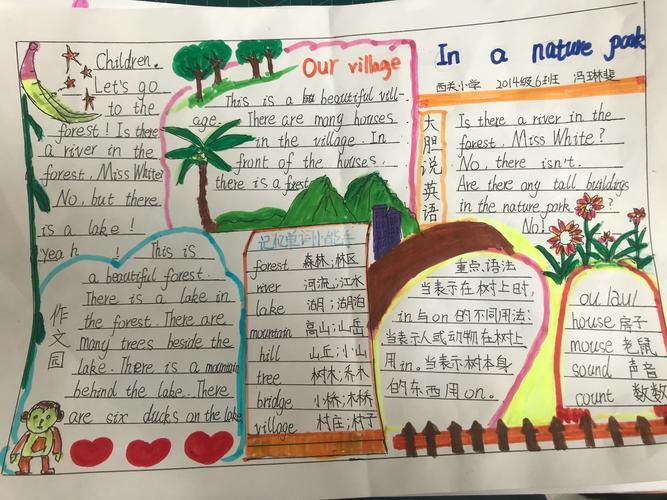 Children.
Let's go
to the
forest! Is there
a river in the
forest, Miss White?
No, but there
is a lake!
yeah !
Our village
This is a beautiful vill-
age. There are many houses
in the village. In
front of the houses.
there is a forest.
In a nature park
西关小学 2014级6班
大胆说英语
Is there a river in the
forest, Miss White?
No, there isn't.
Are there any tall buildings
in the nature park ?
No!
作文园
This is
a beautiful forest.
There is a lake in
the forest. There are
many trees beside the
lake. There is a mountain
behind the lake. There
are six ducks on the lake
记忆单词小能手
forest 森林;林区
river 河流;江水
lake 湖;湖泊
mountain 高山;山岳
hill 山丘;小山
tree 树木;乔木
bridge 小桥;木桥
village 村庄;村子
重点语法
当表示在树上时,
in与on的不同用法:
当表示人或动物在树上
用in。当表示树本身
的东西用on。
ou /au/
house 房子
mouse 老鼠
sound 声音
count 数数